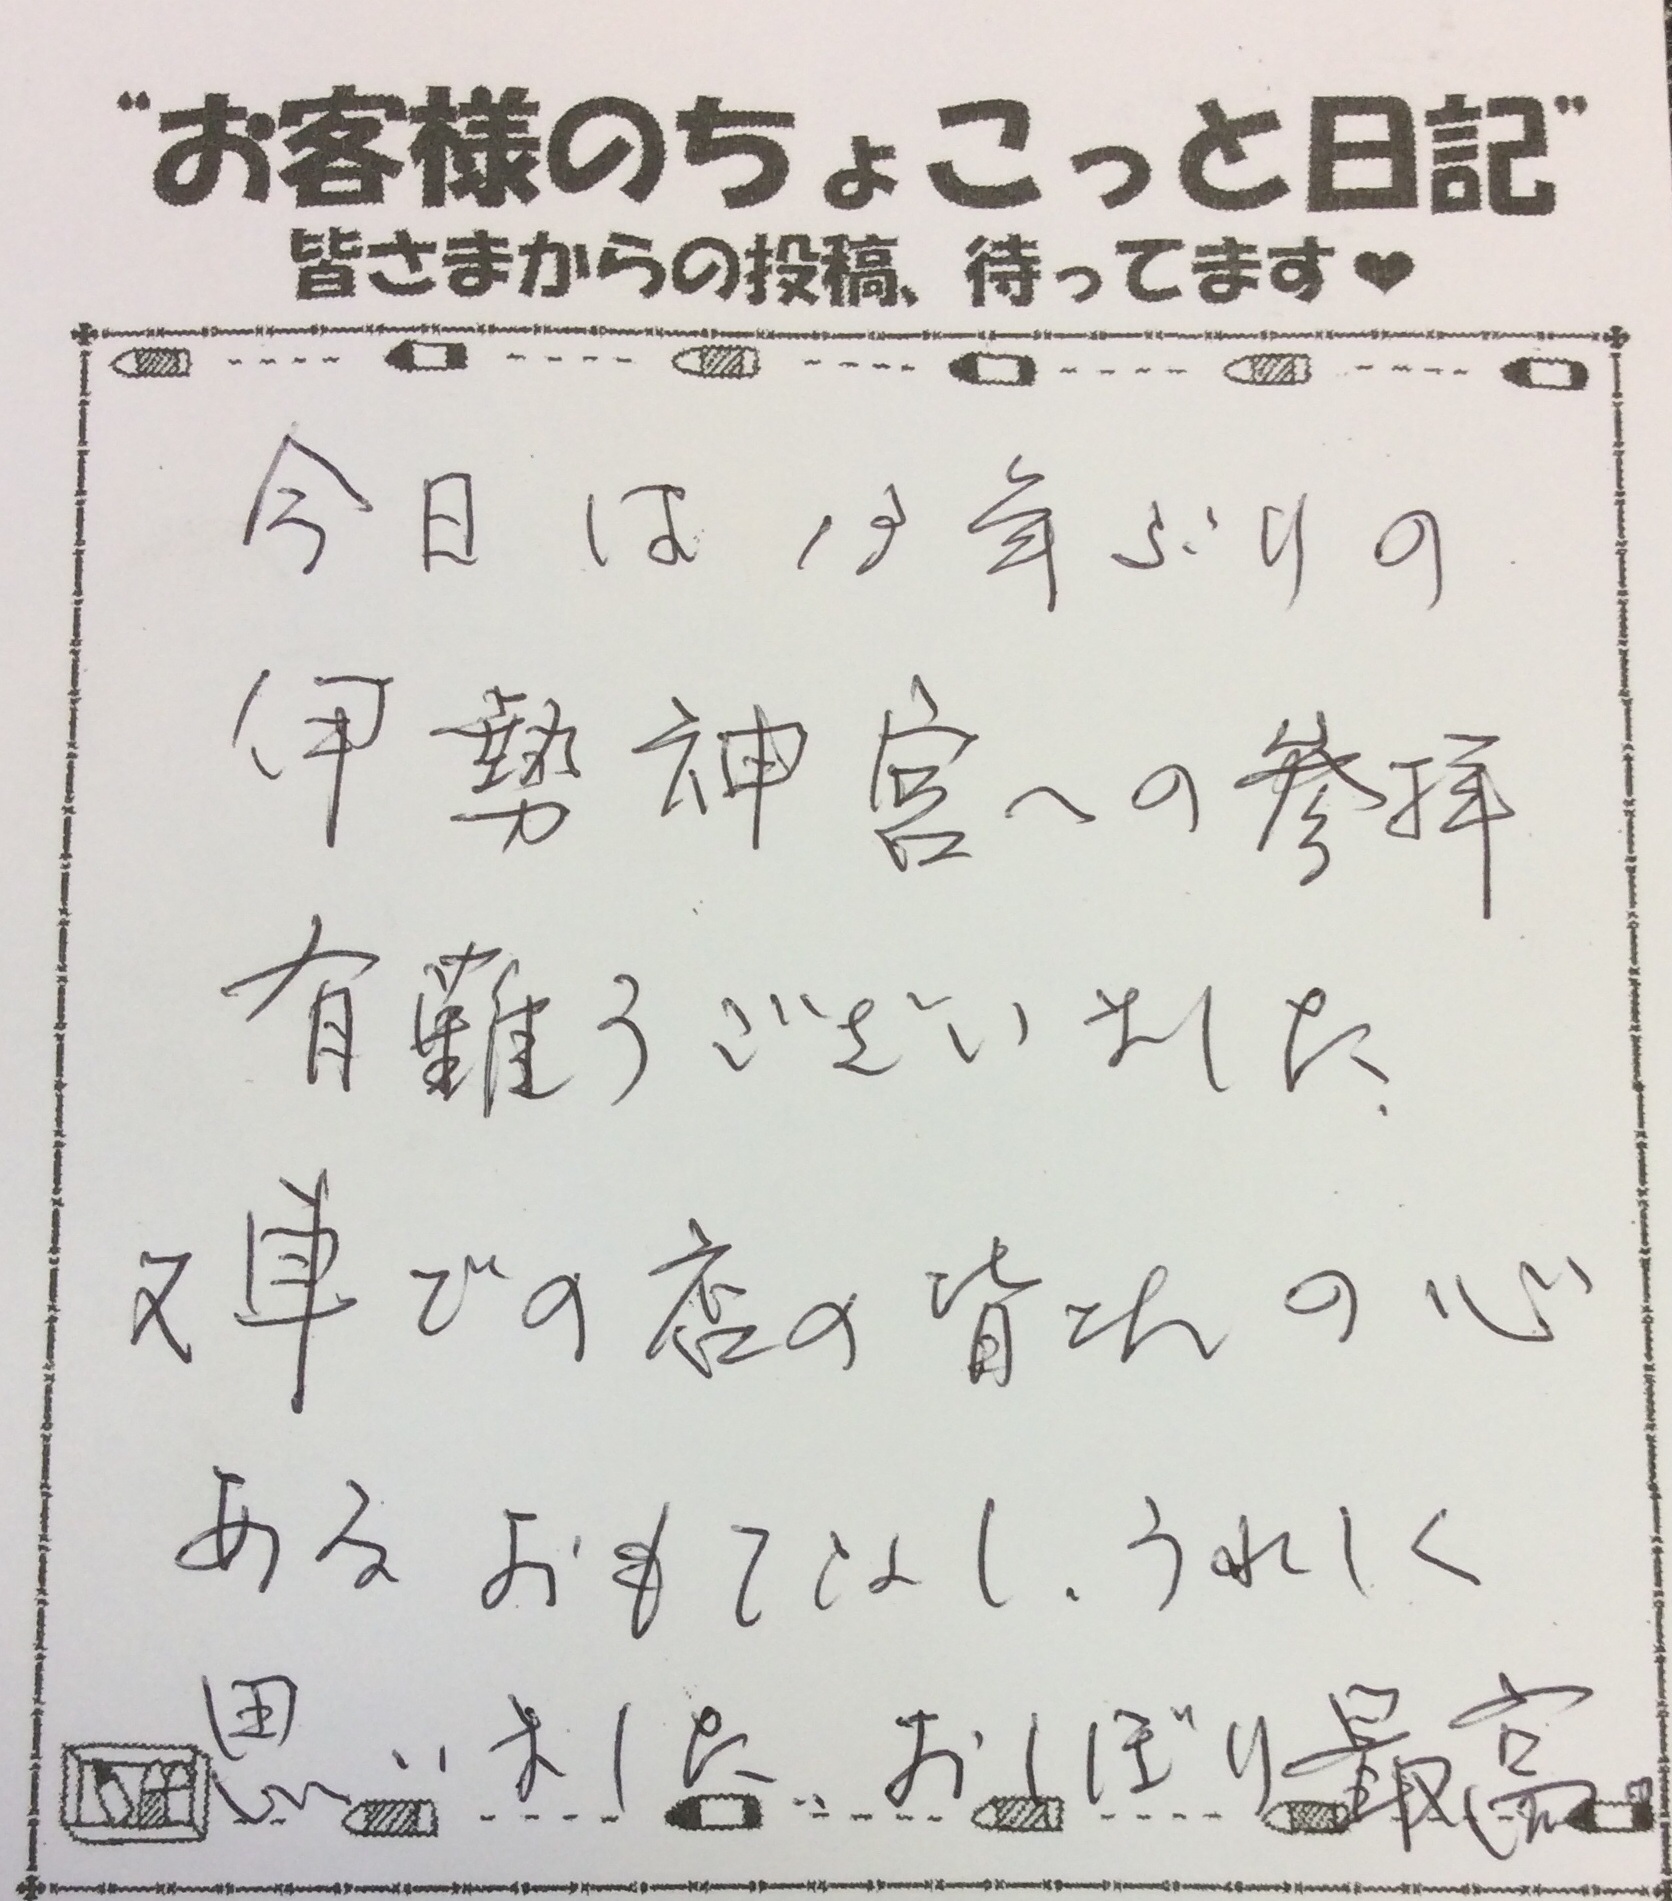 “お客様のちょこっと日記”
皆さまからの投稿、待ってます♥
今日は13年ぶりの
伊勢神宮への参拝
有難うございました。
又車での店の皆さんの心
あるおもてなし、うれしく
思いました。おしぼり最高